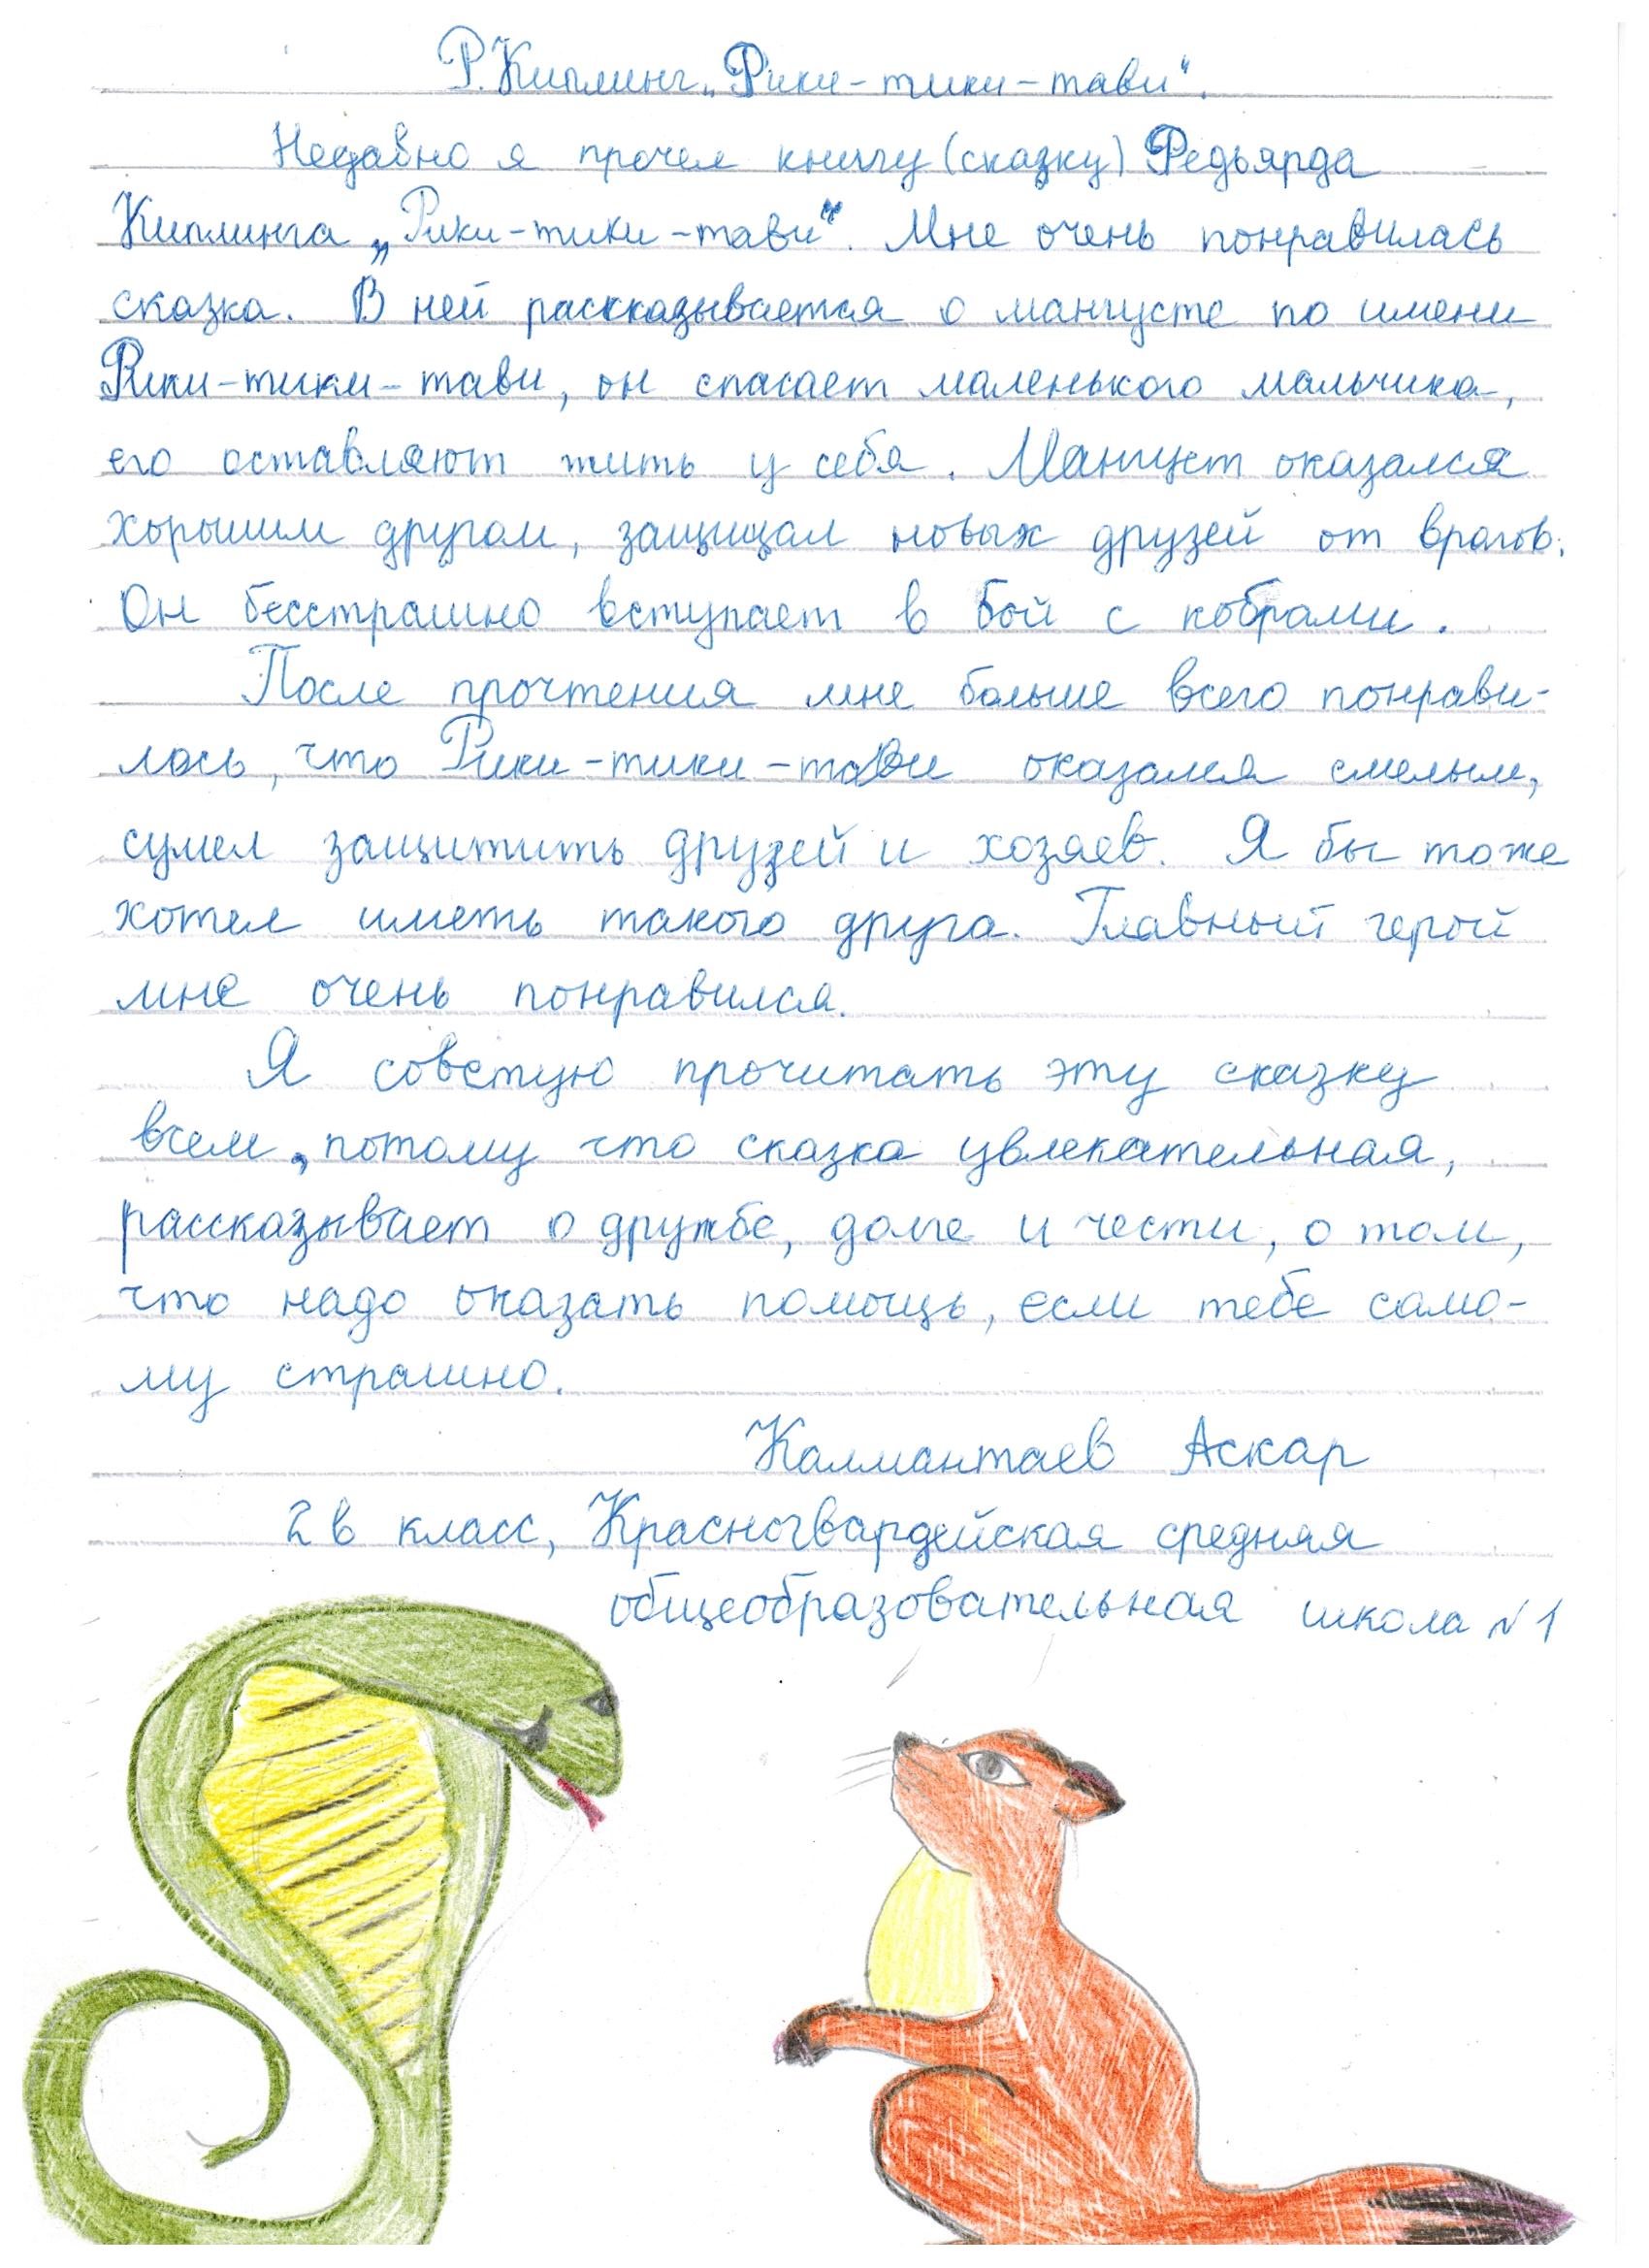 Р. Киплинг „Рики-тики-тави".
Недавно я прочел книгу (сказку) Редьярда
Киплинга „Рики-тики-тави". Мне очень понравилась
сказка. В ней рассказывается о мангусте по имени
Рики-тики-тави, он спасает маленького мальчика,
его оставляют жить у себя. Мангуст оказался
хорошим другом, защищал новых друзей от врагов.
Он бесстрашно вступает в бой с кобрами.
После прочтения мне больше всего понрави-
лось, что Рики-тики-тави оказался смелым,
сумел защитить друзей и хозяев. Я бы тоже
хотел иметь такого друга. Главный герой
мне очень понравился.
Я советую прочитать эту сказку
всем, потому что сказка увлекательная,
рассказывает о дружбе, долге и чести, о том,
что надо оказать помощь, если тебе само-
му страшно.
Калмантаев Аскар
2 в класс, Красногвардейская средняя
общеобразовательная школа №1